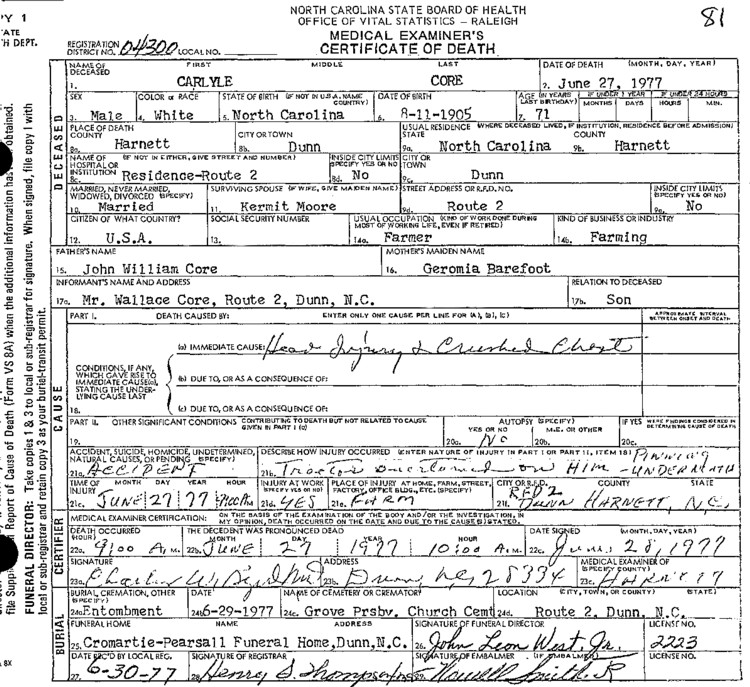 PY 1
ATE
H DEPT.
NORTH CAROLINA STATE BOARD OF HEALTH
OFFICE OF VITAL STATISTICS – RALEIGH
MEDICAL EXAMINER'S
CERTIFICATE OF DEATH
81
REGISTRATION DISTRICT NO. 04300 LOCAL NO.
NAME OF DECEASED FIRST MIDDLE LAST DATE OF DEATH (MONTH, DAY, YEAR)
1. CARLYLE CORE 2. June 27, 1977
SEX COLOR or RACE STATE OF BIRTH (IF NOT IN U.S.A. NAME COUNTRY) DATE OF BIRTH AGE (IN YEARS LAST BIRTHDAY) IF UNDER 1 YEAR MONTHS DAYS IF UNDER 24 HOURS HOURS MIN.
3. Male 4. White 5. North Carolina 6. 8-11-1905 7. 71
PLACE OF DEATH COUNTY CITY OR TOWN USUAL RESIDENCE (WHERE DECEASED LIVED, IF INSTITUTION, RESIDENCE BEFORE ADMISSION) STATE COUNTY
8a. Harnett 8b. Dunn 9a. North Carolina 9b. Harnett
NAME OF HOSPITAL OR INSTITUTION (IF NOT IN EITHER, GIVE STREET AND NUMBER) INSIDE CITY LIMITS (SPECIFY YES OR NO) CITY OR TOWN
8c. Residence-Route 2 8d. No 9c. Dunn
MARRIED, NEVER MARRIED, WIDOWED, DIVORCED (SPECIFY) SURVIVING SPOUSE (IF WIFE, GIVE MAIDEN NAME) STREET ADDRESS OR R.F.D. NO. INSIDE CITY LIMITS (SPECIFY YES OR NO)
10. Married 11. Kermit Moore 9d. Route 2 9e. No
CITIZEN OF WHAT COUNTRY? SOCIAL SECURITY NUMBER USUAL OCCUPATION (KIND OF WORK DONE DURING MOST OF WORKING LIFE, EVEN IF RETIRED) KIND OF BUSINESS OR INDUSTRY
12. U.S.A. 13. 14a. Farmer 14b. Farming
FATHER'S NAME MOTHER'S MAIDEN NAME
15. John William Core 16. Geromia Barefoot
INFORMANT'S NAME AND ADDRESS RELATION TO DECEASED
17a. Mr. Wallace Core, Route 2, Dunn, N.C. 17b. Son
PART I. DEATH CAUSED BY: ENTER ONLY ONE CAUSE PER LINE FOR (A), (B), (C) APPROXIMATE INTERVAL BETWEEN ONSET AND DEATH
(a) IMMEDIATE CAUSE: Head Injury & Crushed Chest
CONDITIONS, IF ANY, WHICH GAVE RISE TO IMMEDIATE CAUSE(a), STATING THE UNDERLYING CAUSE LAST
(b) DUE TO, OR AS A CONSEQUENCE OF:
18. (c) DUE TO, OR AS A CONSEQUENCE OF:
PART II. OTHER SIGNIFICANT CONDITIONS CONTRIBUTING TO DEATH BUT NOT RELATED TO CAUSE GIVEN IN PART I (a) AUTOPSY (SPECIFY) YES OR NO M.E. OR OTHER IF YES WERE FINDINGS CONSIDERED IN DETERMINING CAUSE OF DEATH
19. 20a. No 20b. 20c.
ACCIDENT, SUICIDE, HOMICIDE, UNDETERMINED, NATURAL CAUSES, OR PENDING (SPECIFY) DESCRIBE HOW INJURY OCCURRED (ENTER NATURE OF INJURY IN PART I OR PART II, ITEM 18)
21a. ACCIDENT 21b. Tractor overturned on Him - Pinning UNDERNEATH
TIME OF INJURY MONTH DAY YEAR HOUR INJURY AT WORK (SPECIFY YES OR NO) PLACE OF INJURY AT HOME, FARM, STREET, FACTORY, OFFICE BLDG., ETC. (SPECIFY) CITY OR R.F.D. COUNTY STATE
21c. JUNE 27 77 9:00 Am. 21d. YES 21e. FARM 21f. RFD 2 Dunn HARNETT, N.C.
MEDICAL EXAMINER CERTIFICATION: ON THE BASIS OF THE EXAMINATION OF THE BODY AND/OR THE INVESTIGATION, IN MY OPINION, DEATH OCCURRED ON THE DATE AND DUE TO THE CAUSE(S) STATED.
DEATH OCCURRED (HOUR) THE DECEDENT WAS PRONOUNCED DEAD MONTH DAY YEAR HOUR DATE SIGNED (MONTH, DAY, YEAR)
22a. 9:00 A.M. 22b. JUNE 27 1977 10:00 A.M. 22c. June 28, 1977
SIGNATURE ADDRESS MEDICAL EXAMINER OF (SPECIFY COUNTY)
23a. Charles W. Byrd MD 23b. Dunn NC 28334 23c. HARNETT
BURIAL, CREMATION, OTHER (SPECIFY) DATE NAME OF CEMETERY OR CREMATORY LOCATION (CITY, TOWN, OR COUNTY) (STATE)
24a Entombment 24b 6-29-1977 24c. Grove Prsbv. Church Cemt 24d. Route 2, Dunn, N.C.
FUNERAL HOME NAME ADDRESS SIGNATURE OF FUNERAL DIRECTOR LICENSE NO.
25. Cromartie-Pearsall Funeral Home,Dunn,N.C. 26. John Leon West, Jr. 2223
DATE REC'D BY LOCAL REG. SIGNATURE OF REGISTRAR SIGNATURE OF EMBALMER (IF EMBALMED) LICENSE NO.
27. 6-30-77 28. Henry S. Thompson
DECEASED
CAUSE
CERTIFIER
BURIAL
FUNERAL DIRECTOR: Take copies 1 & 3 to local or sub-registrar for signature. When signed, file copy 1 with
local or sub-registrar and retain copy 3 as your burial-transit permit.
Report of Cause of Death (Form VS 8A) when the additional information has obtained.
8X